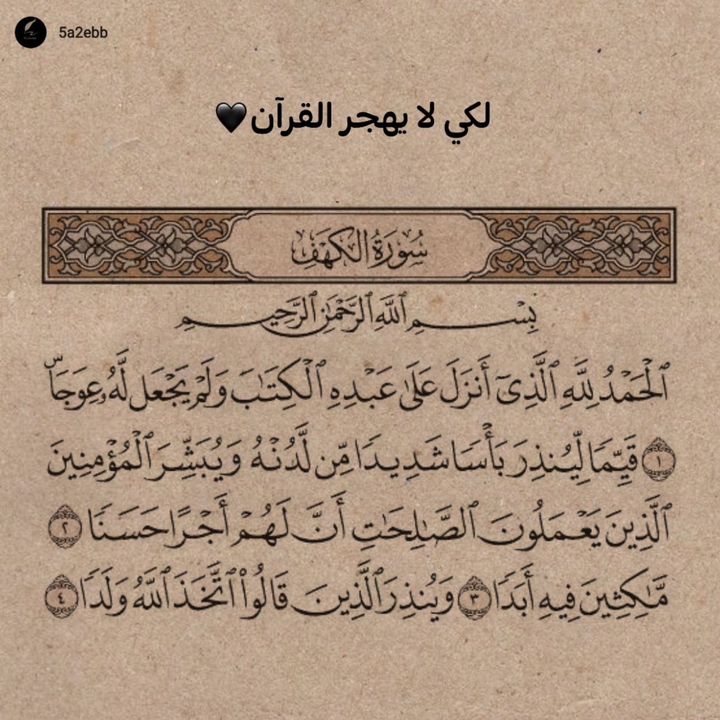 5a2ebb
لكي لا يهجر القرآن🖤
سُورَةُ الكَهْفِ
بِسْمِ ٱللَّهِ ٱلرَّحْمَٰنِ ٱلرَّحِيمِ
ٱلْحَمْدُ لِلَّهِ ٱلَّذِىٓ أَنزَلَ عَلَىٰ عَبْدِهِ ٱلْكِتَٰبَ وَلَمْ يَجْعَل لَّهُۥ عِوَجَاۜ
١ قَيِّمًا لِّيُنذِرَ بَأْسًا شَدِيدًا مِّن لَّدُنْهُ وَيُبَشِّرَ ٱلْمُؤْمِنِينَ
ٱلَّذِينَ يَعْمَلُونَ ٱلصَّٰلِحَٰتِ أَنَّ لَهُمْ أَجْرًا حَسَنًا ٢
مَّٰكِثِينَ فِيهِ أَبَدًا ٣ وَيُنذِرَ ٱلَّذِينَ قَالُوا۟ ٱتَّخَذَ ٱللَّهُ وَلَدًا ٤